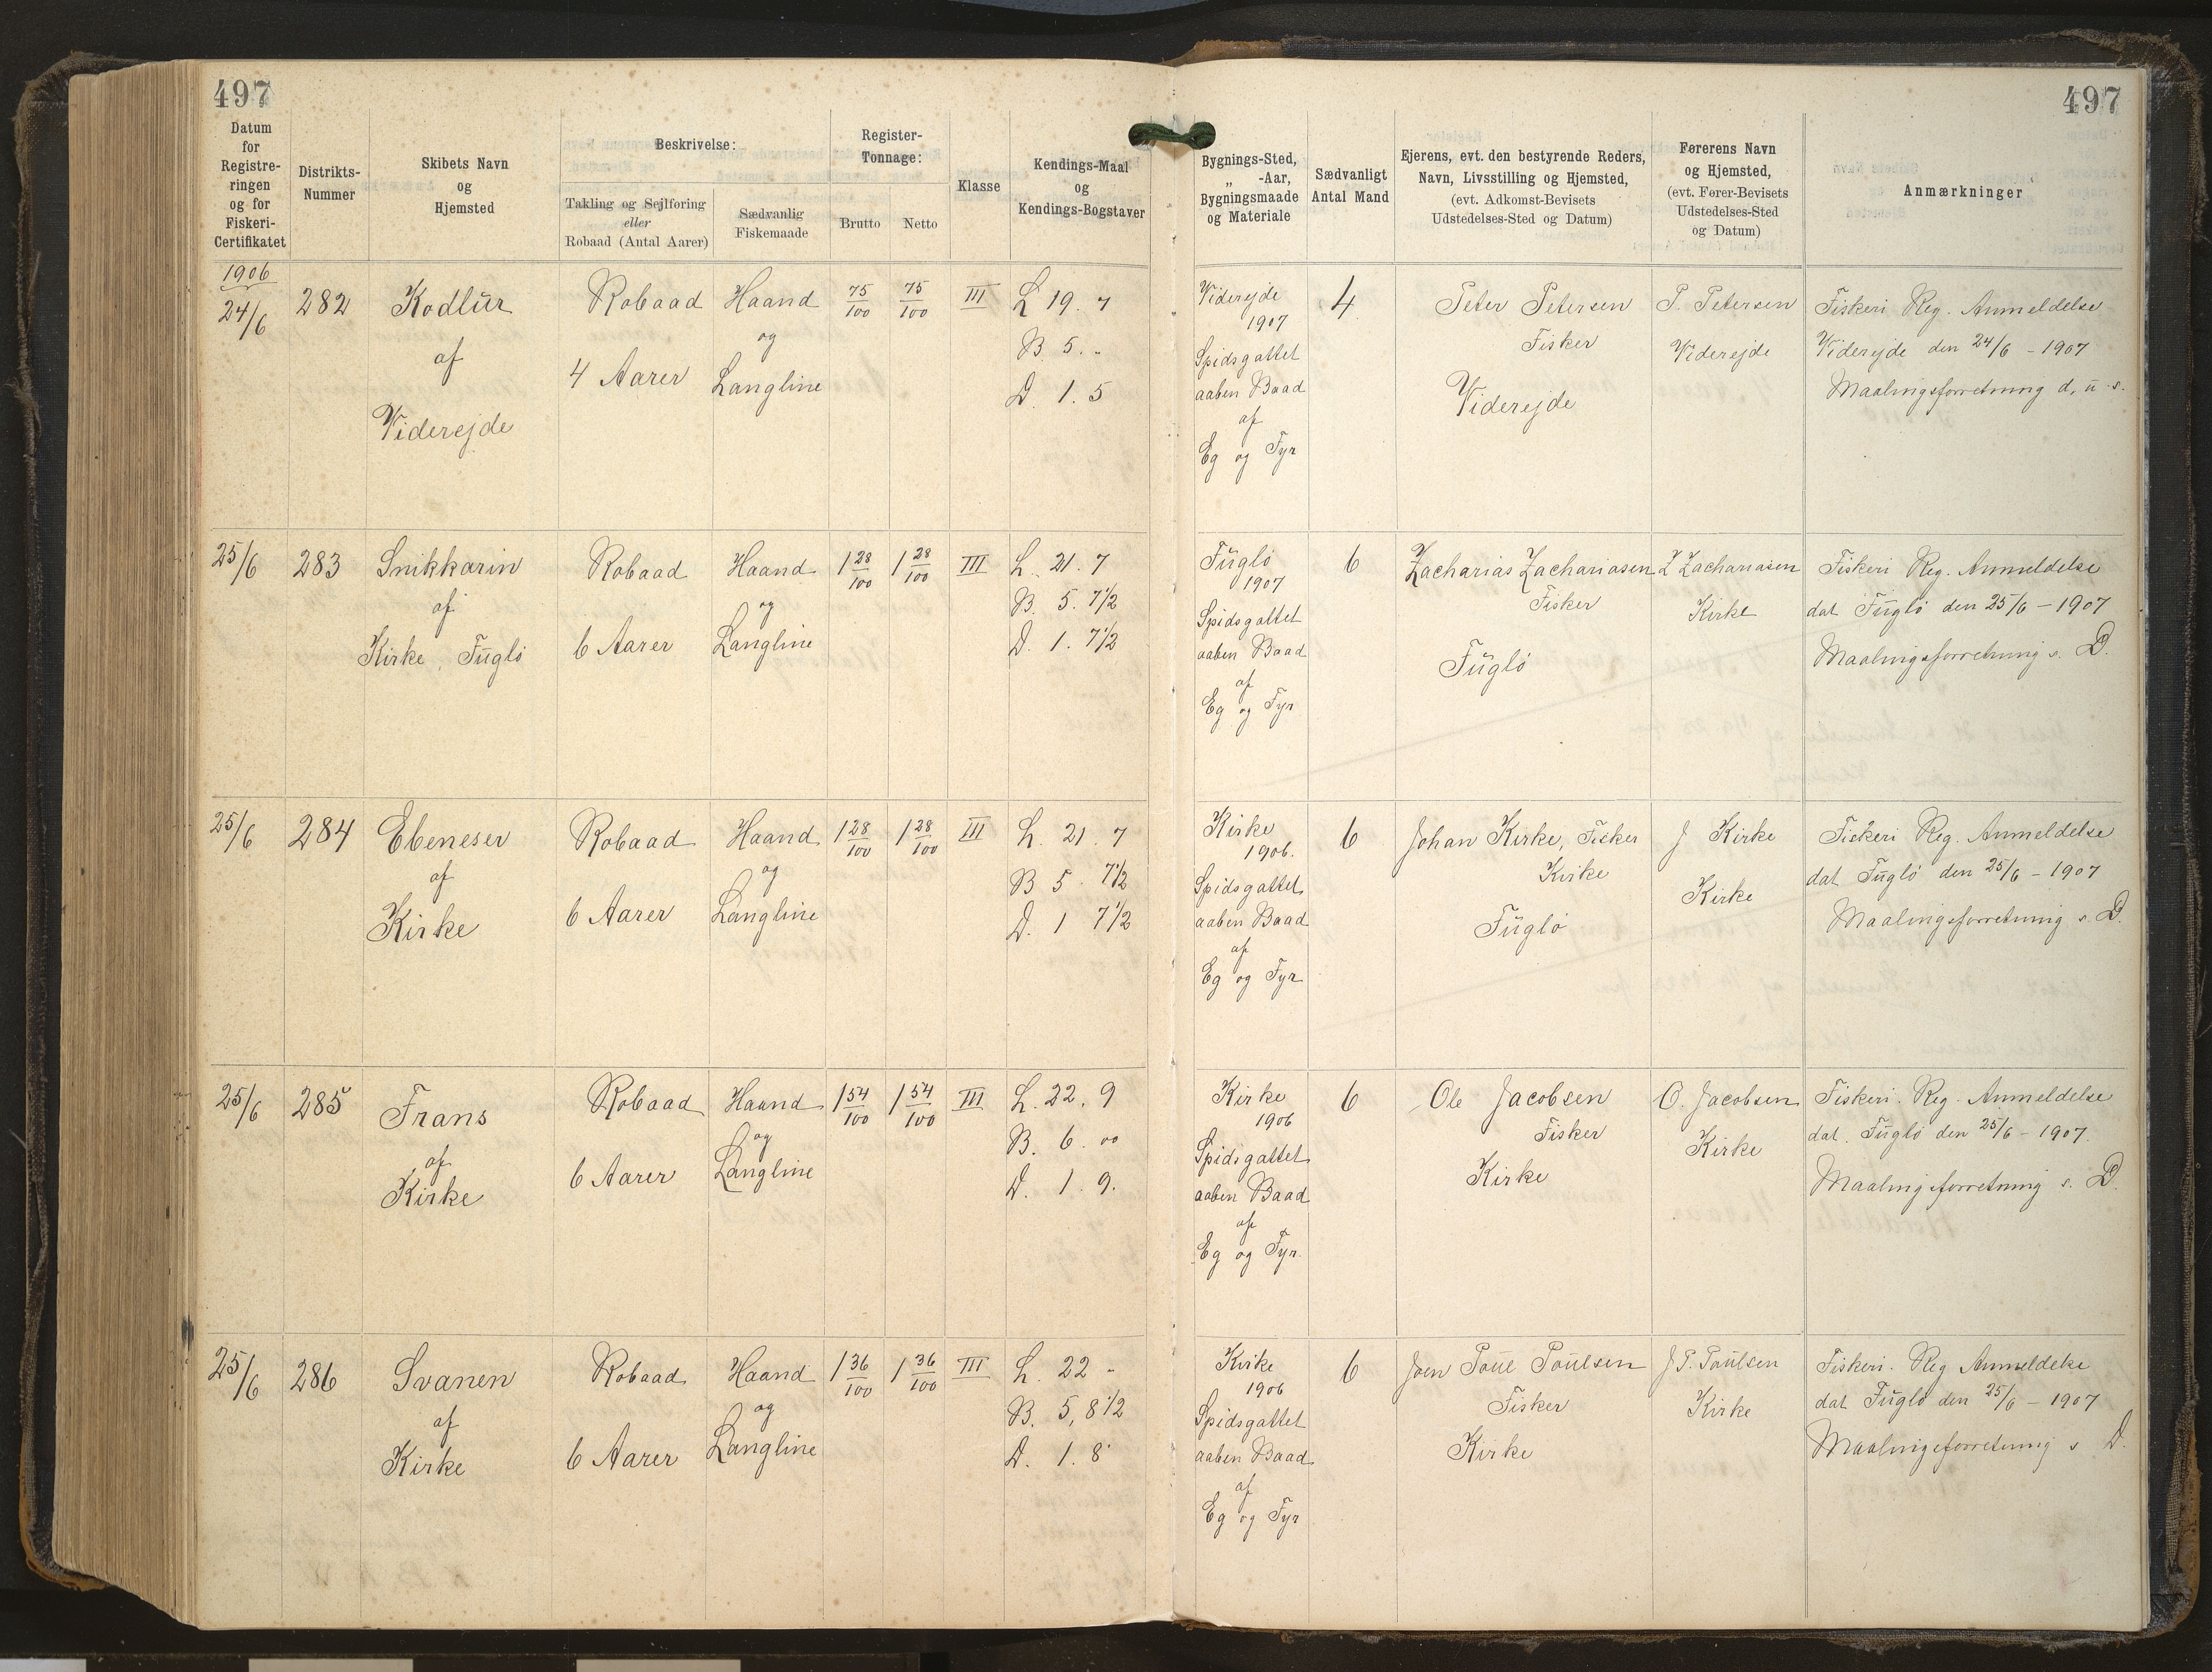 497
497
Datum for Registreringen og for Fiskeri-Certifikatet
Distrikts-Nummer
Skibets Navn og Hjemsted
Beskrivelse:
Takling og Sejlføring eller Robaad (Antal Aarer)
Sædvanlig Fiskemaade
Register-Tonnage:
Brutto
Netto
Klasse
Kendings-Maal og Kendings-Bogstaver
Bygnings-Sted, „ -Aar, Bygningsmaade og Materiale
Sædvanligt Antal Mand
Ejerens, evt. den bestyrende Reders, Navn, Livsstilling og Hjemsted, (evt. Adkomst-Bevisets Udstedelses-Sted og Datum)
Førerens Navn og Hjemsted, (evt. Fører-Bevisets Udstedelses-Sted og Datum)
Anmærkninger
1906
24/6 282 Kodlur Robaad Haand 75/100 75/100 III L 19. 7
af og B 5. -
4 Aarer Langline D. 1. 5
Viderejde
Viderejde 4 Peter Petersen P. Petersen Fiskeri Reg. Anmeldelse
1907 Fisker Viderejde Viderejde den 24/6 - 1907
Spidsgattet Viderejde Maalingsforretning d. u. s.
aaben Baad
af
Eg og Fyr
25/6 283 Snikkarin Robaad Haand 1 28/100 1 28/100 III L. 21. 7
af og B. 5. 7 1/2
Kirke, Fuglö 6 Aarer Langline D. 1. 7 1/2
Fuglö 6 Zacharias Zachariasen Z Zachariasen Fiskeri Reg. Anmeldelse
1907 Fisker Kirke dat Fuglö den 25/6 - 1907
Spidsgattet Fuglö Maalingsforretning s. D.
aaben Baad
af
Eg og Fyr
25/6 284 Ebeneser Robaad Haand 1 28/100 1 28/100 III L. 21. 7
af og B 5. 7 1/2
Kirke 6 Aarer Langline D. 1 7 1/2
Kirke 6 Johan Kirke, Fisker J Kirke Fiskeri Reg. Anmeldelse
1906. Kirke Kirke dat Fuglö den 25/6 - 1907
Spidsgattet Fuglö Maalingsforretning s. D.
aaben Baad
af
Eg og Fyr
25/6 285 Frans Robaad Haand 1 54/100 1 54/100 III L. 22. 9
af og B. 6. 00
Kirke 6 Aarer Langline D. 1. 9.
Kirke 6 Ole Jacobsen O. Jacobsen Fiskeri. Reg. Anmeldelse
1906 Fisker Kirke dat. Fuglö den 25/6 - 1907.
Spidsgattet Kirke Maalingsforretning s. D.
aaben Baad
af
Eg og Fyr.
25/6 286 Svanen Robaad Haand 1 36/100 1 36/100 III L. 22 -
af og B. 5, 8 1/2
Kirke 6 Aarer Langline D. 1. 8
Kirke 6 Joen Poul Poulsen J P. Poulsen Fiskeri. Reg Anmeldelse
1906 Fisker Kirke dat Fuglö den 25/6 - 1907
Spidsgattet Kirke Maalingsforretning s D.
aaben Baad
af
Eg og Fyr